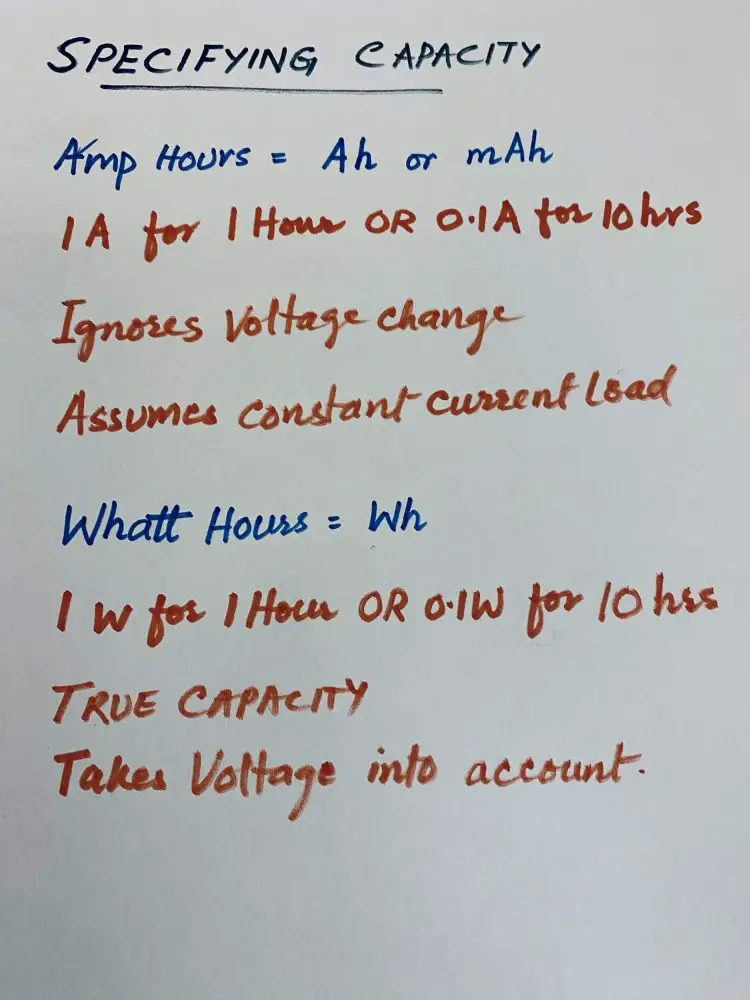 SPECIFYING CAPACITY
Amp Hours = Ah or mAh
1 A for 1 Hour OR 0.1A for 10 hrs
Ignores Voltage change
Assumes constant current Load
Whatt Hours = Wh
1 W for 1 Hour OR 0.1W for 10 hrs
TRUE CAPACITY
Takes Voltage into account.